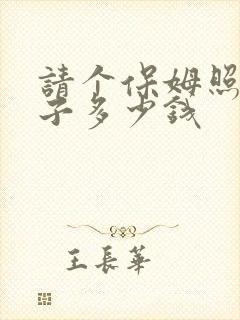 請个保姆照
子多少钱
王長華